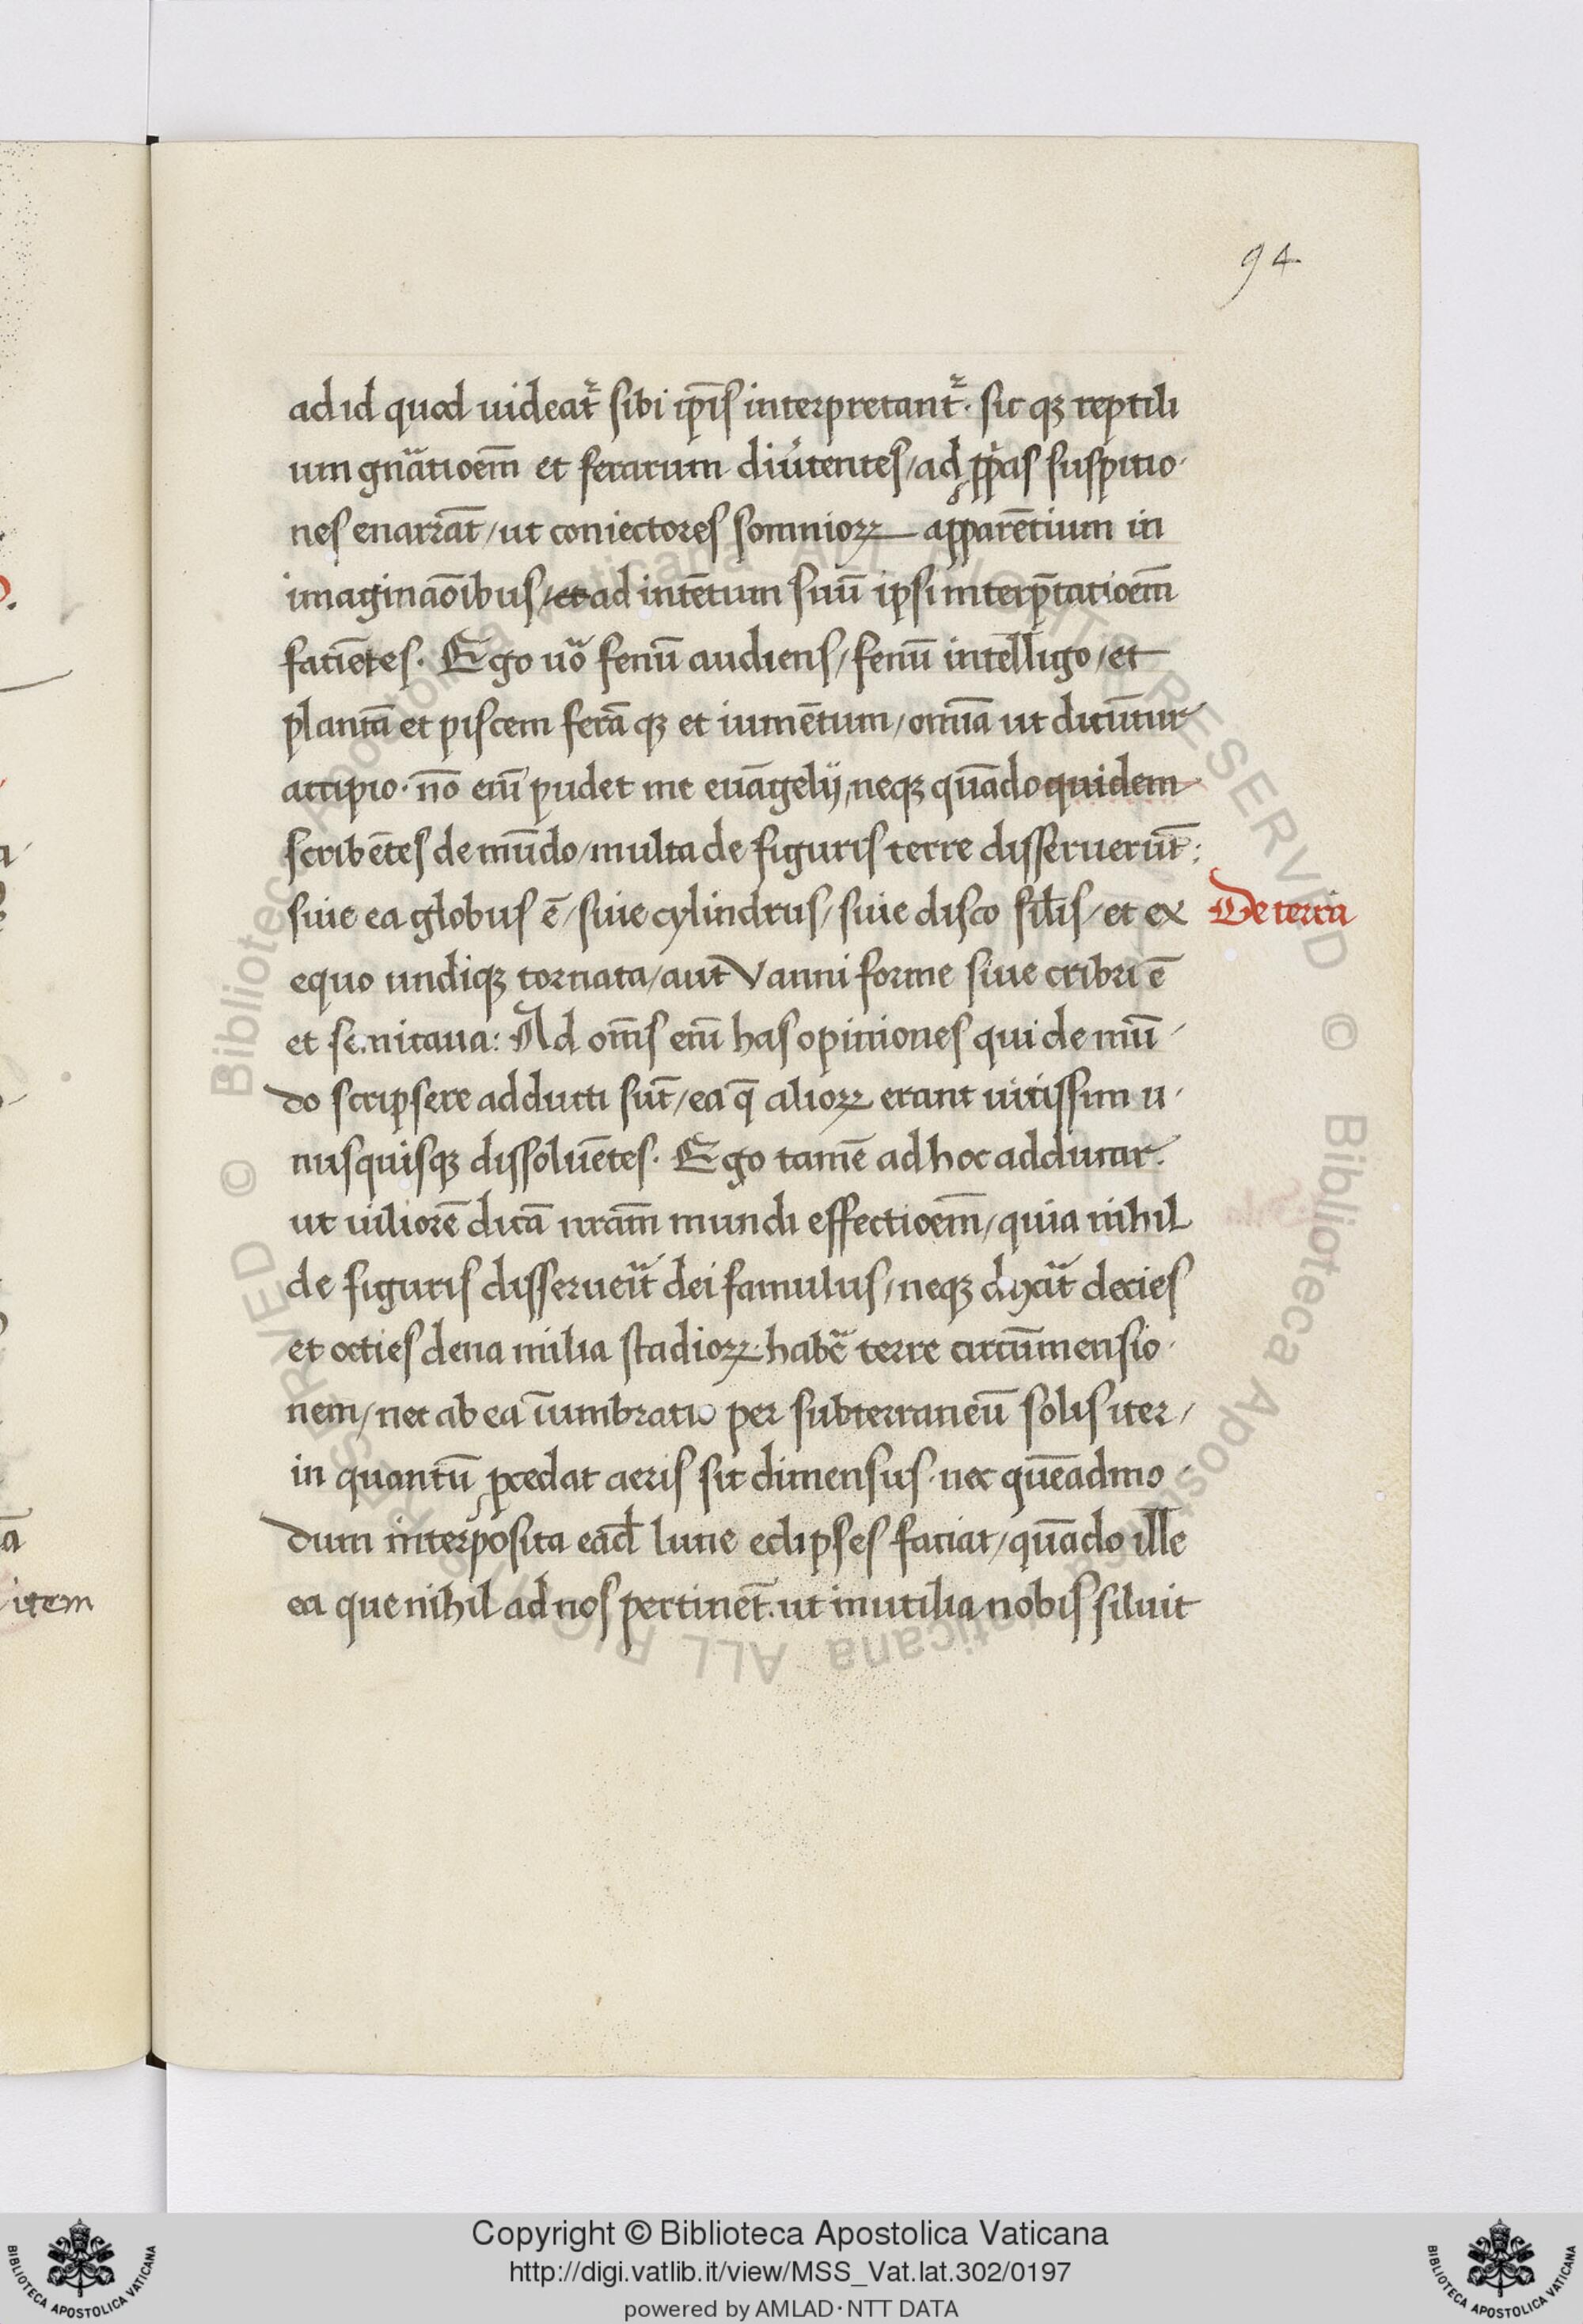 94
ad id quod uideat᷑ sibi ip̄is interpretant᷑. sic qꝫ reptili
um gn̄atioem̄ et ferarum diu̾tentes/ad ꝓp̄as suspitio-
nes enarrāt/ut coniectores somnioꝝ apparētium in
imaginaōibus/et ad intētum suū ipsi interp̄tatioem̄
faciētes. Ego uo᷑ fenū audiens/fenū intelligo/et
plantā et piscem ferā qꝫ et iumētum/omīa ut dicūtur
accipio. nō eni᷑ pudet me euāgelij, neqꝫ quādo quidem
scribētes de mūdo/multa de figuris terre disseruerūt:
siue ea globus ē/siue cylindrus/siue disco sil̄is/et ex
De terra
equo undiqꝫ tornata/aut Vanni forme siue cribri ē
et semicaua: Ad om̄s eni᷑ has opiniones qui de mū-
do scripsere adducti sūt/ea q̄ alioꝝ erant uicissim u-
nusquisqꝫ dissoluētes. Ego tamē ad hoc adducar.
ut uiliorē dicā nram̄ mundi effectioem̄/quia nihil
de figuris disserueı᷑t dei famulus/neqꝫ dixı᷑t decies
et octies dena milia stadioꝝ. habē terre circūmensio-
nem/nec ab ea īumbratio per subterraneū solis iter/
in quantū ꝓcedat aeris sit dimensus. nec quēadmo-
dum interposita ead̄ lune eclipses faciat/quādo ille
ea que nihil ad nos pertinēt. ut inutilia nobis siluit
item
Copyright © Biblioteca Apostolica Vaticana
http://digi.vatlib.it/view/MSS_Vat.lat.302/0197
powered by AMLAD・NTT DATA
BIBLIOTECA APOSTOLICA VATICANA
BIBLIOTECA APOSTOLICA VATICANA